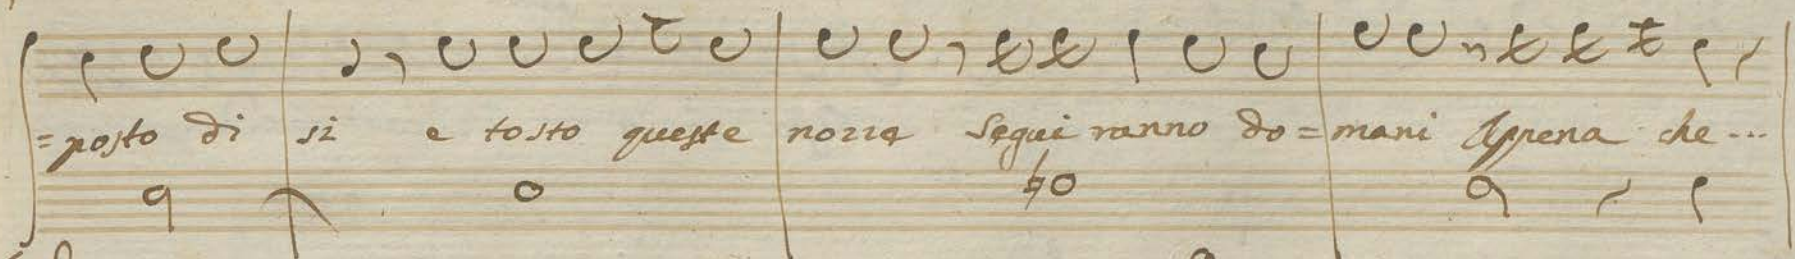 =posto di si e tosto queste nozze Segui ranno do=mani Appena che...